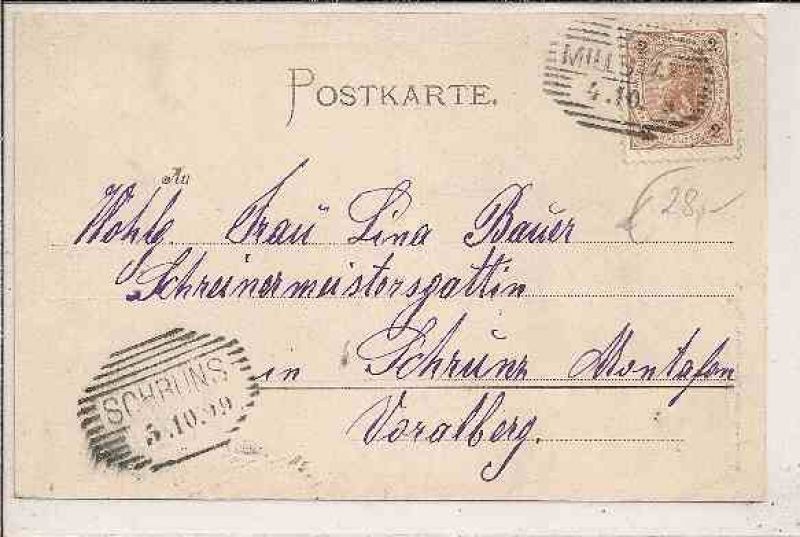 POSTKARTE.
2 2
4.10
2
An
28,-
Wohlg. Frau Lina Bauer
Schreinermeistersgattin
in Schruns Montafon
Voralberg.
SCHRUNS
5.10.99